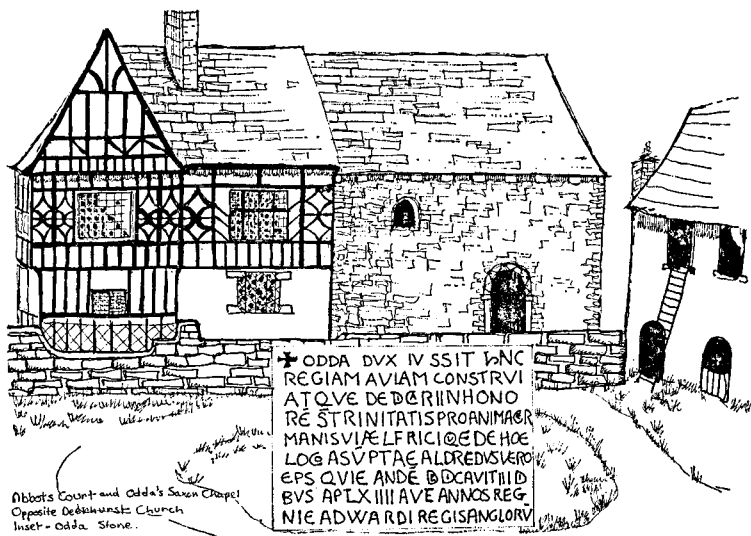 ✚ ODDA DVX IVSSIT hANC
REGIAM AVLAM CONSTRVI
ATQVE DEDICRII INHONO
RE S̄ TRINITATIS PRO ANIMA GR
MANI SVI ÆLFRICI QE DE HOE
LOCO ASŪPTA EALDREDVS VERO
EPS QVI EANDĒ DEDICAVIT IIII ID
BVS APL XIIII AVE ANNOS REG
NI EADWARDI REGIS ANGLORV̄
Abbots Court and Odda's Saxon Chapel
Opposite Deerhurst Church
Inset - Odda Stone.